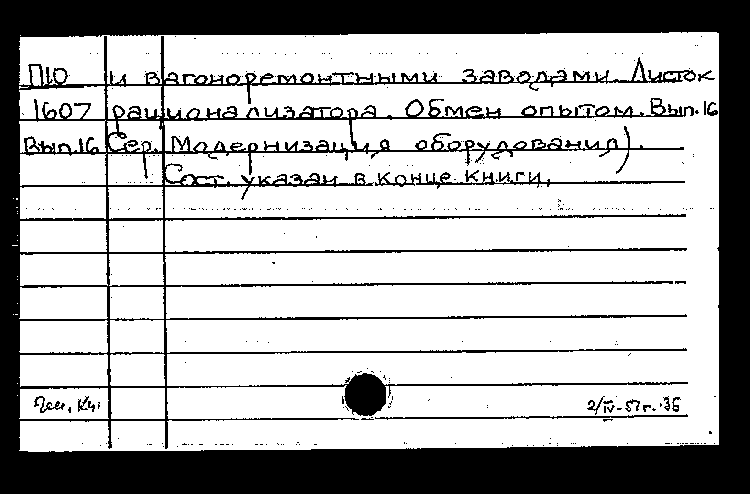 П10 и вагоноремонтными заводами. Листок
1607 рационализатора. Обмен опытом. Вып.16
Вып.16 Сер. Модернизация оборудования).
Сост. указан в конце книги.
2/IV-57г.